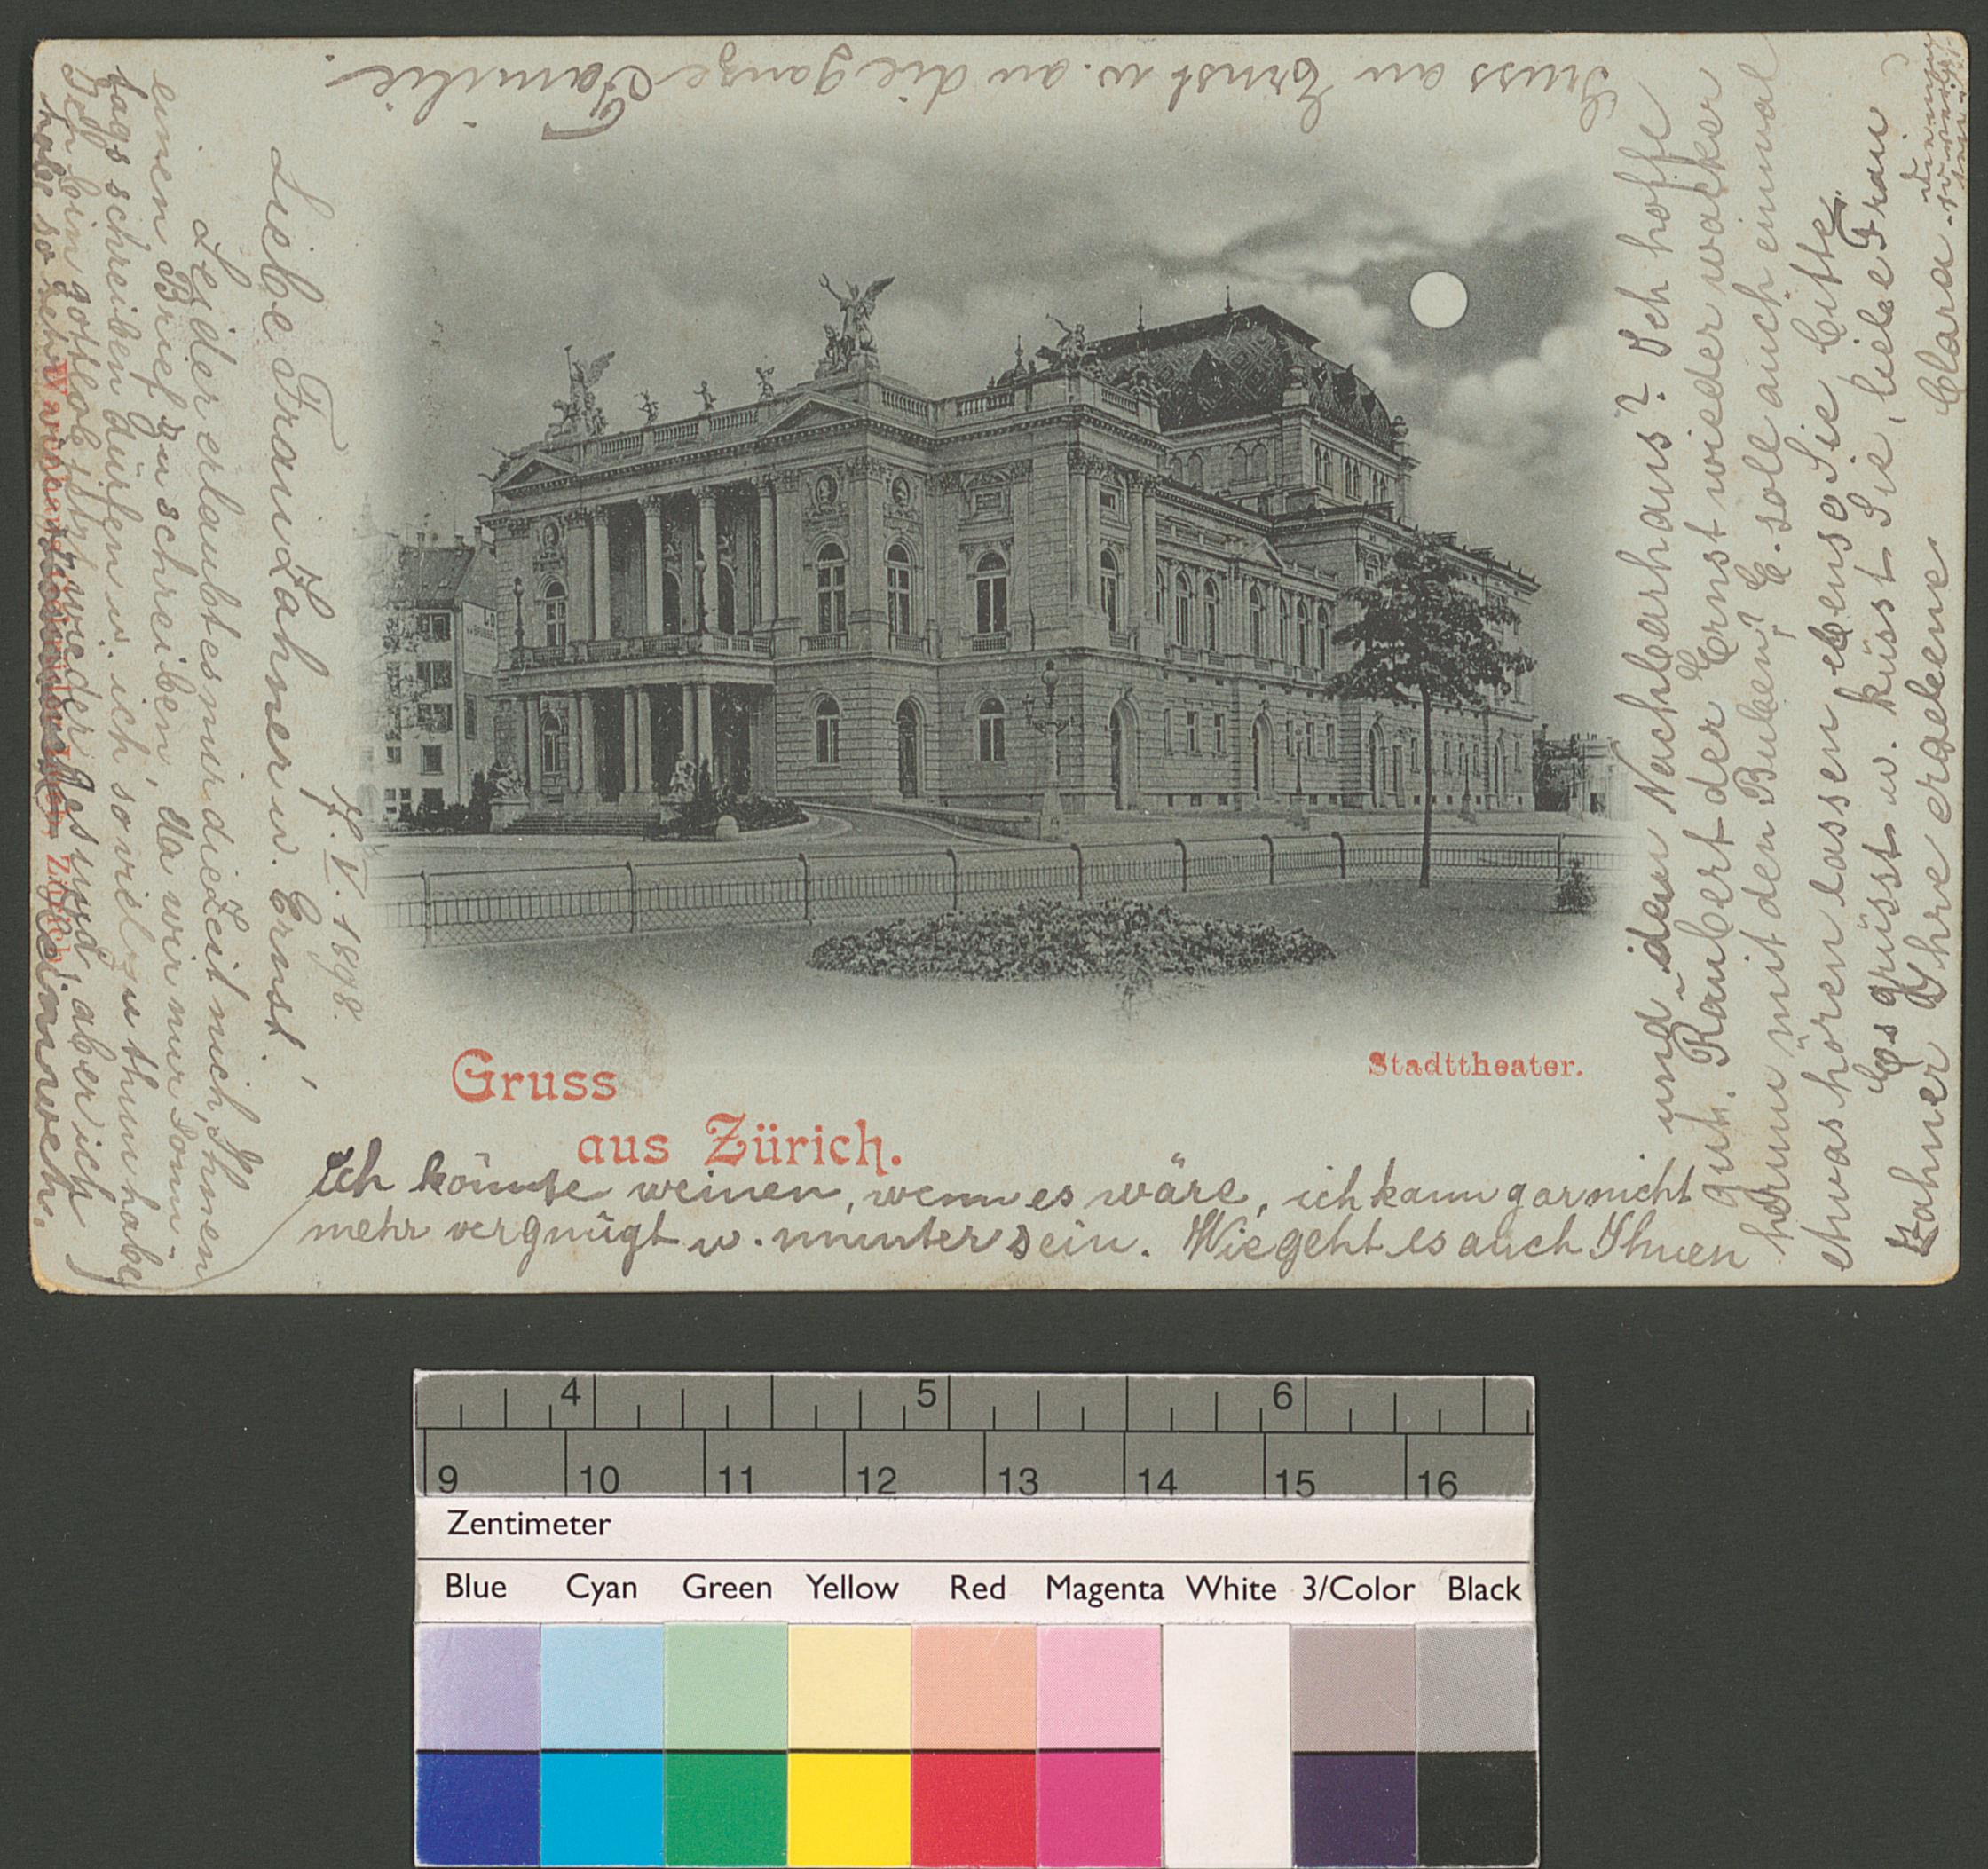 7. V. 1898.
Liebe Frau Zahner u. Ernst!
Leider erlaubt es mir die Zeit nicht, Ihnen
einen Brief zu schreiben, da wir nur Sonn-
tags schreiben dürfen u. ich so viel zu thun habe.
Ich bin gottlob jetzt wieder gesund, aber ich
habe so sehr Heimweh.
Ich könnte weinen, wenn es wäre, ich kann gar nicht
mehr vergnügt u. munter sein. Wie geht es auch Ihnen
und dem Nachbarhaus? Ich hoffe
gut. Raubert der Ernst wieder wacker
herum mit den Buben? E. soll auch einmal
etwas hören lassen ebenso Sie bitte.
Es grüsst u. küsst Sie, liebe Frau
Zahner Ihre ergebene Clara
Gruss an Ernst u. an die ganze Familie.
Gruss
aus Zürich.
Stadttheater.
Zürich
4 5 6
9 10 11 12 13 14 15 16
Zentimeter
Blue Cyan Green Yellow Red Magenta White 3/Color Black